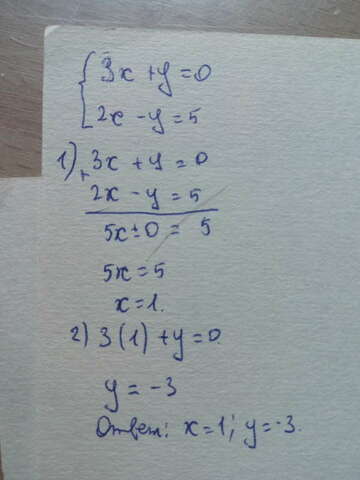 {3x + y = 0
2x - y = 5
1) + 3x + y = 0
2x - y = 5
5x ± 0 = 5
5x = 5
x = 1.
2) 3(1) + y = 0
y = -3
Ответ: x = 1; y = -3.